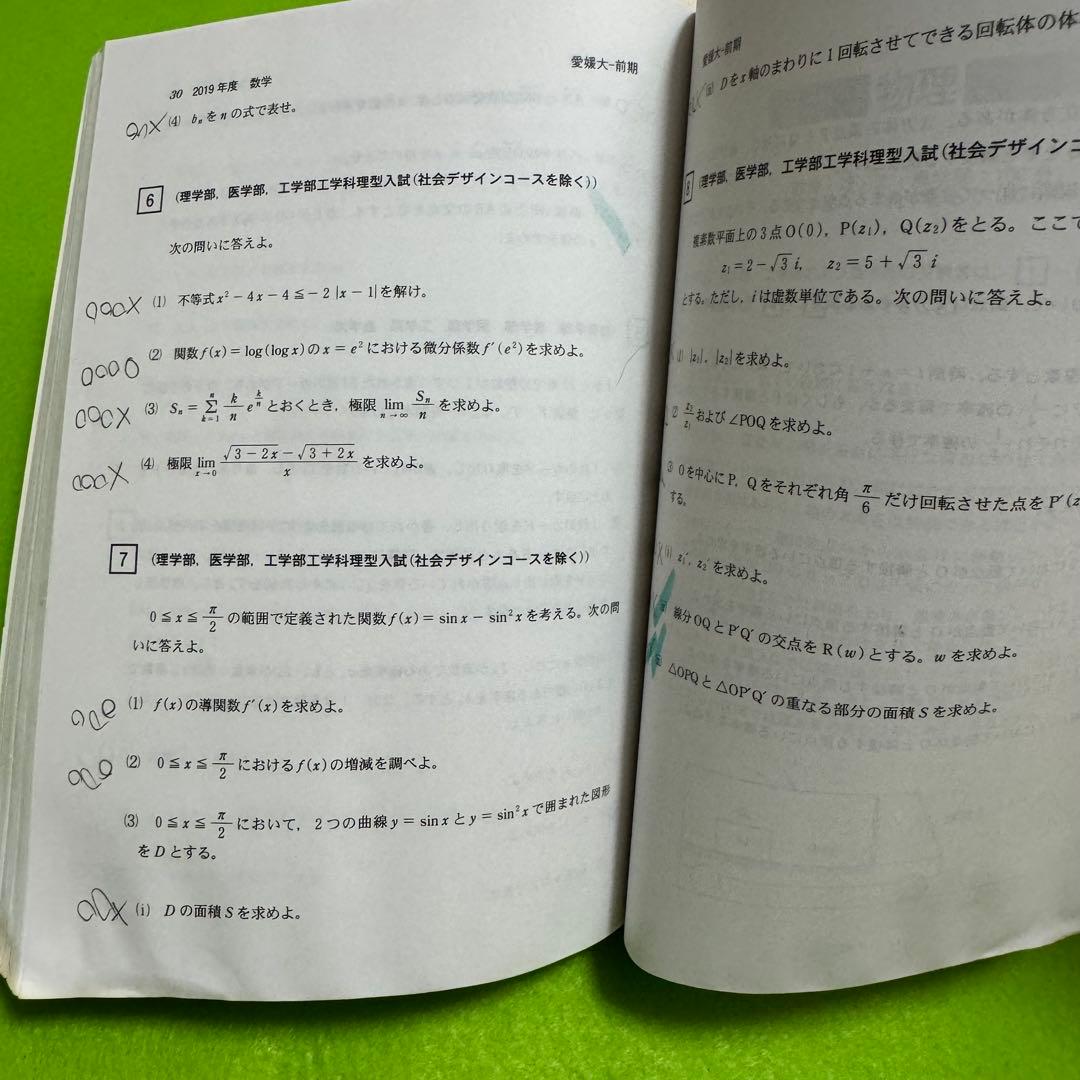 30 2019年度 数学
愛媛大-前期
(4) bₙをnの式で表せ。
6 (理学部, 医学部, 工学部工学科理型入試(社会デザインコースを除く))
次の問いに答えよ。
(1) 不等式 x²−4x−4≦−2|x−1| を解け。
(2) 関数 f(x)=log(log x) の x=e² における微分係数 f′(e²) を求めよ。
(3) Sₙ=∑_{k=1}^{n} k/n e^{k/n} とおくとき, 極限 lim_{n→∞} Sₙ/n を求めよ。
(4) 極限 lim_{x→0} (√(3−2x)−√(3+2x))/x を求めよ。
7 (理学部, 医学部, 工学部工学科理型入試(社会デザインコースを除く))
0≦x≦π/2 の範囲で定義された関数 f(x)=sin x−sin²x を考える。次の問
いに答えよ。
(1) f(x) の導関数 f′(x) を求めよ。
(2) 0≦x≦π/2 における f(x) の増減を調べよ。
(3) 0≦x≦π/2 において, 2つの曲線 y=sin x と y=sin²x で囲まれた図形
をDとする。
(i) Dの面積Sを求めよ。
愛媛大-前期
Dをx軸のまわりに1回転させてできる回転体の体
8 (理学部, 医学部, 工学部工学科理型入試(社会デザインコ
複素数平面上の3点O(0), P(z₁), Q(z₂)をとる。ここで
z₁=2−√3 i, z₂=5+√3 i
とする。ただし, iは虚数単位である。次の問いに答えよ。
(1) |z₁|, |z₂|を求めよ。
(2) z₂/z₁ および∠POQを求めよ。
(3) Oを中心にP, Qをそれぞれ角 π/6 だけ回転させた点をP′(z
する。
(i) z₁′, z₂′を求めよ。
線分OQとP′Q′の交点をR(w)とする。wを求めよ。
△OPQと△OP′Q′の重なる部分の面積Sを求めよ。